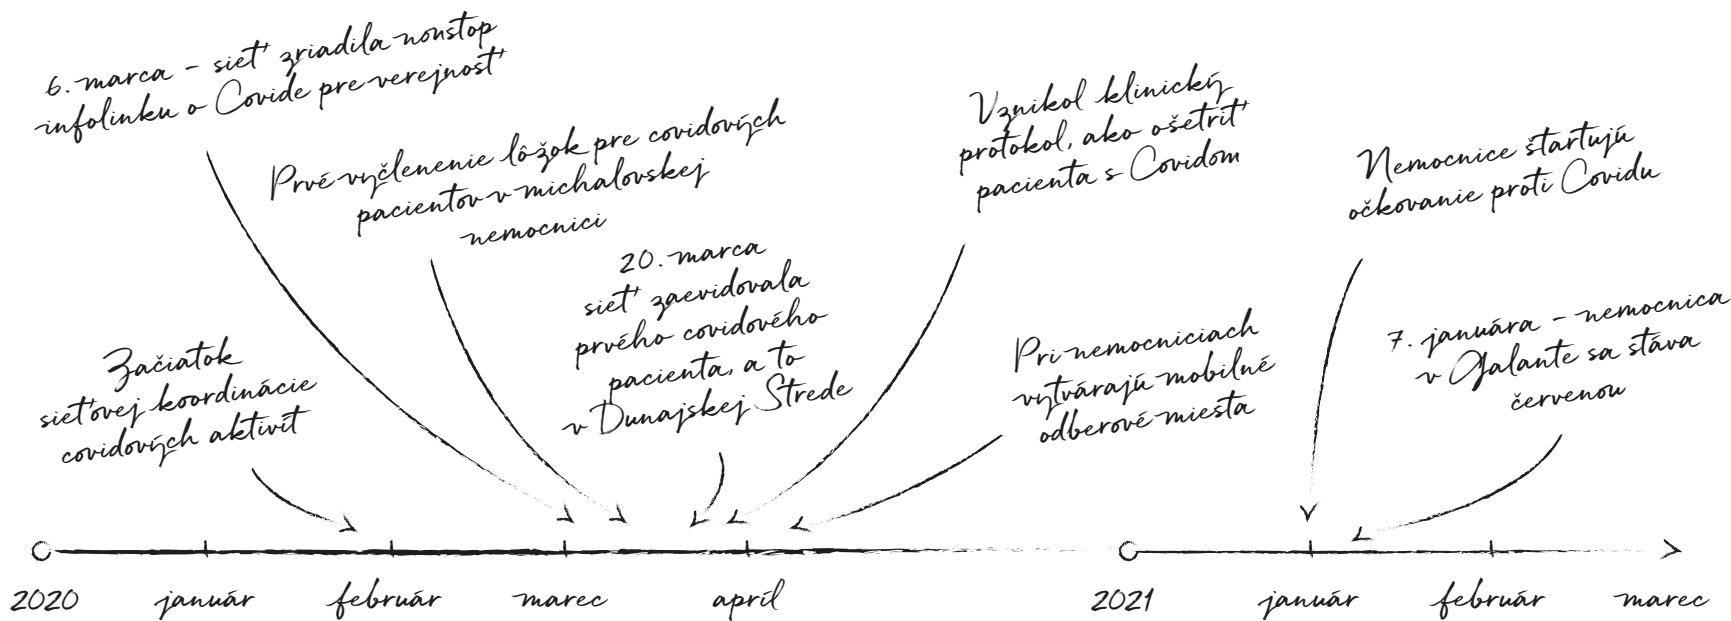 6. marca – sieť zriadila nonstop
infolinku o Covide pre verejnosť
Prvé vyčlenenie lôžok pre covidových
pacientov v michalovskej
nemocnici
Vznikol klinický
protokol, ako ošetriť
pacienta s Covidom
Nemocnice štartujú
očkovanie proti Covidu
Začiatok
sieťovej koordinácie
covidových aktivít
20. marca
sieť zaevidovala
prvého covidového
pacienta, a to
v Dunajskej Strede
Pri nemocniciach
vytvárajú mobilné
odberové miesta
7. januára – nemocnica
v Galante sa stáva
červenou
2020 január február marec apríl 2021 január február marec